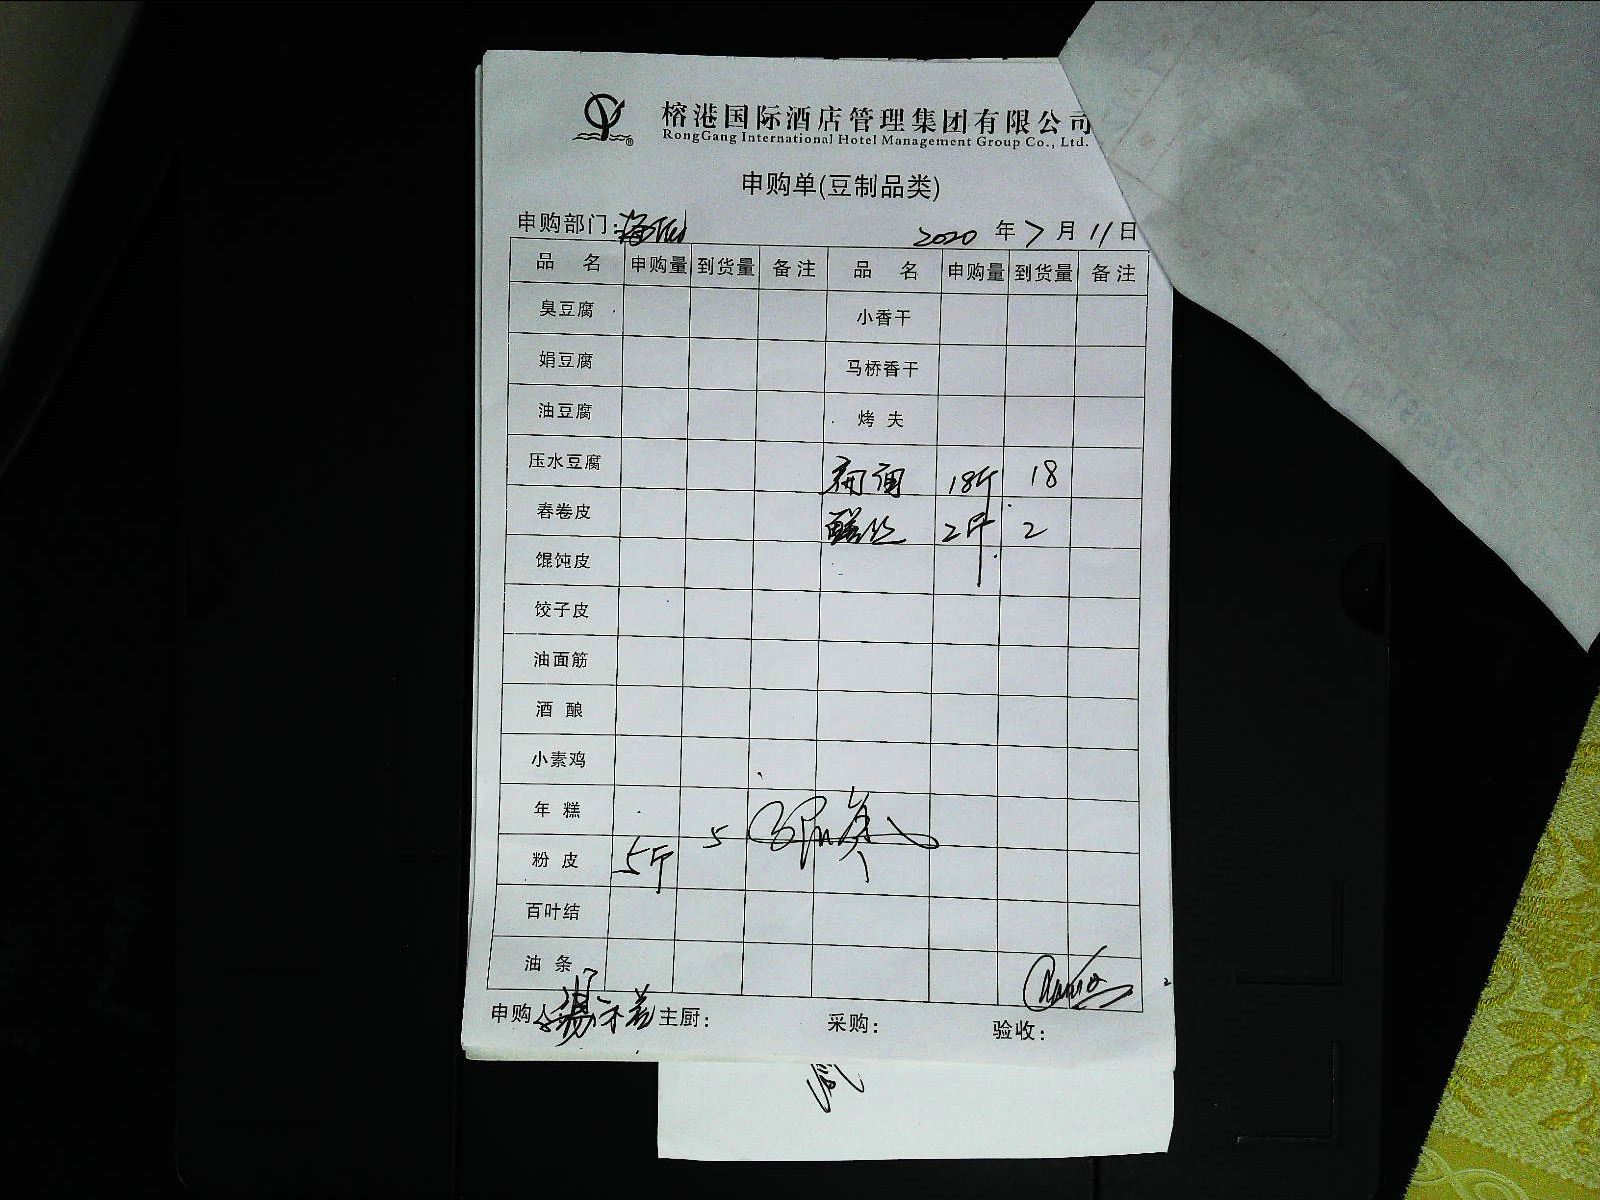 榕港国际酒店管理集团有限公司
RongGang International Hotel Management Group Co., Ltd.
申购单(豆制品类)
申购部门: 2020 年 7 月 11 日
品 名 申购量 到货量 备注 品 名 申购量 到货量 备注
臭豆腐 小香干
娟豆腐 马桥香干
油豆腐 烤 夫
压水豆腐 18斤 18
春卷皮 2斤 2
馄饨皮
饺子皮
油面筋
酒 酿
小素鸡
年 糕
粉 皮 5斤 5
百叶结
油 条
申购人 主厨: 采购: 验收: